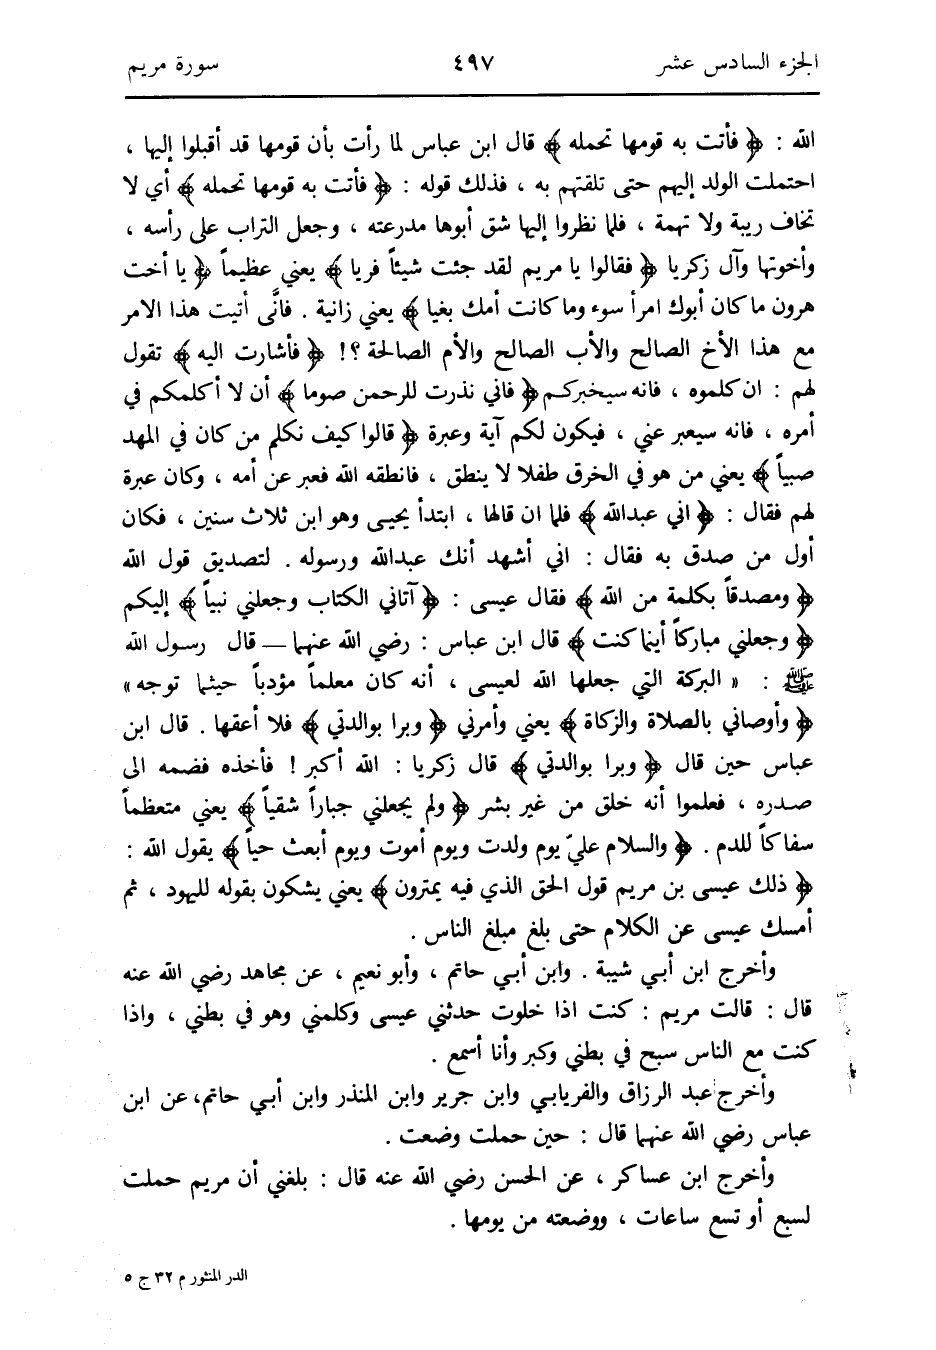 الجزء السادس عشر ٤٩٧ سورة مريم
الله : ﴿ فأتت به قومها تحمله ﴾ قال ابن عباس لما رأت بأن قومها قد أقبلوا إليها ،
احتملت الولد إليهم حتى تلقتهم به ، فذلك قوله : ﴿ فأتت به قومها تحمله ﴾ أي لا
تخاف ريبة ولا تهمة ، فلما نظروا إليها شق أبوها مدرعته ، وجعل التراب على رأسه ،
وأخوتها وآل زكريا ﴿ فقالوا يا مريم لقد جئت شيئاً فريا ﴾ يعني عظيماً ﴿ يا أخت
هرون ما كان أبوك امرأ سوء وما كانت أمك بغيا ﴾ يعني زانية . فانَّى أتيت هذا الامر
مع هذا الأخ الصالح والأب الصالح والأم الصالحة ؟! ﴿ فأشارت اليه ﴾ تقول
لهم : ان كلموه ، فانه سيخبركم ﴿ فاني نذرت للرحمن صوما ﴾ أن لا أكلمكم في
أمره ، فانه سيعبر عني ، فيكون لكم آية وعبرة ﴿ قالوا كيف نكلم من كان في المهد
صبياً ﴾ يعني من هو في الخرق طفلا لا ينطق ، فانطقه الله فعبر عن أمه ، وكان عبرة
لهم فقال : ﴿ اني عبدالله ﴾ فلما ان قالها ، ابتدأ يحيى وهو ابن ثلاث سنين ، فكان
أول من صدق به فقال : اني أشهد أنك عبدالله ورسوله . لتصديق قول الله
﴿ ومصدقاً بكلمة من الله ﴾ فقال عيسى : ﴿ آتاني الكتاب وجعلني نبياً ﴾ إليكم
﴿ وجعلني مباركاً أينما كنت ﴾ قال ابن عباس : رضي الله عنهما — قال رسول الله
ﷺ : « البركة التي جعلها الله لعيسى ، أنه كان معلماً مؤدباً حيثما توجه »
﴿ وأوصاني بالصلاة والزكاة ﴾ يعني وأمرني ﴿ وبرا بوالدتي ﴾ فلا أعقها . قال ابن
عباس حين قال ﴿ وبرا بوالدتي ﴾ قال زكريا : الله أكبر ! فأخذه فضمه الى
صدره ، فعلموا أنه خلق من غير بشر ﴿ ولم يجعلني جباراً شقياً ﴾ يعني متعظماً
سفاكاً للدم . ﴿ والسلام عليّ يوم ولدت ويوم أموت ويوم أبعث حياً ﴾ يقول الله :
﴿ ذلك عيسى بن مريم قول الحق الذي فيه يمترون ﴾ يعني يشكون بقوله لليهود ، ثم
أمسك عيسى عن الكلام حتى بلغ مبلغ الناس .
وأخرج ابن أبي شيبة . وابن أبي حاتم ، وأبو نعيم ، عن مجاهد رضي الله عنه
قال : قالت مريم : كنت اذا خلوت حدثني عيسى وكلمني وهو في بطني ، واذا
كنت مع الناس سبح في بطني وكبر وأنا أسمع .
وأخرج عبد الرزاق والفريابي وابن جرير وابن المنذر وابن أبي حاتم، عن ابن
عباس رضي الله عنهما قال : حين حملت وضعت .
وأخرج ابن عساكر ، عن الحسن رضي الله عنه قال : بلغني أن مريم حملت
لسبع أو تسع ساعات ، ووضعته من يومها .
الدر المنثور م ٣٢ ج ٥